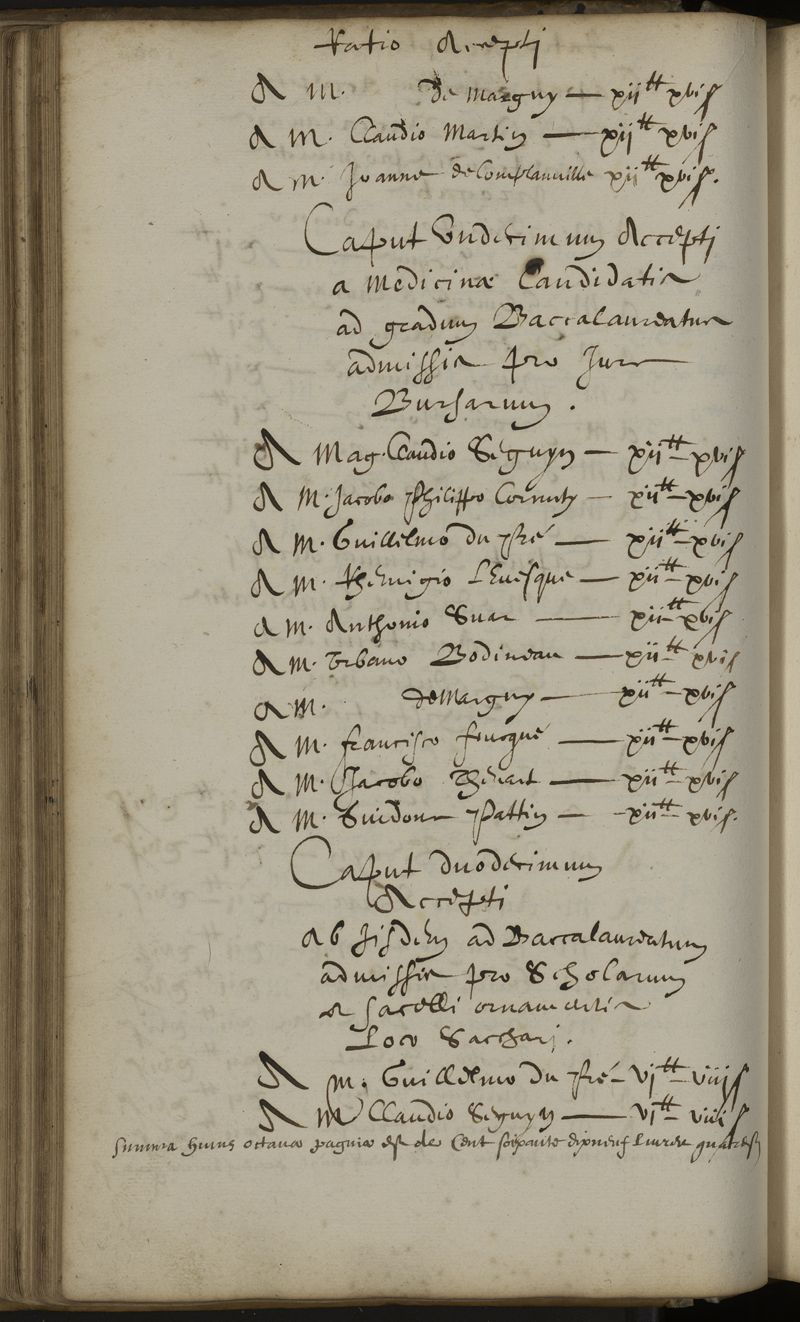 Ratio Accepti
A M. De Marguy — xii tt xvi s
A M. Claudio Martin — xii tt xvi s
A M. Joanne de Complainville xii tt xvi s.
Caput Undecimum Accepti
a Medicinæ Candidatis
ad gradum Baccalaureatus
admissis pro Jure
Bursarum .
A Mag. Claudio Seguyn — xii tt - xvi s
A M. Jacobo Philippo Cornuty — xii tt - xvi s
A M. Guillelmo Du Pré — xii tt - xvi s
A M. Rhemigio Levesque — xii tt - xvi s
A M. Anthonio — xii tt xvi s
A M. Urbano Bodineau — xii tt xvi s
A M. de Marguy — xii tt - xvi s
A M. Francisco Foucqué — xii tt - xvi s
A M. Jacobo Thévart — xii tt xvi s
A M. Guidone Pattin — xii tt xvi s.
Caput duodecimum
Accepti
Ab Jisdem ad Baccalaureatum
admissis pro Scholarum
& Sacelli ornamentis
Loco Sacchari .
A M. Guillelmo Du Pré - vi tt - viii s
A M Claudio Seguyn — vi tt - viii s
Summa huius octavæ paginæ est de Cent soixante dixneuf Livres quatre s